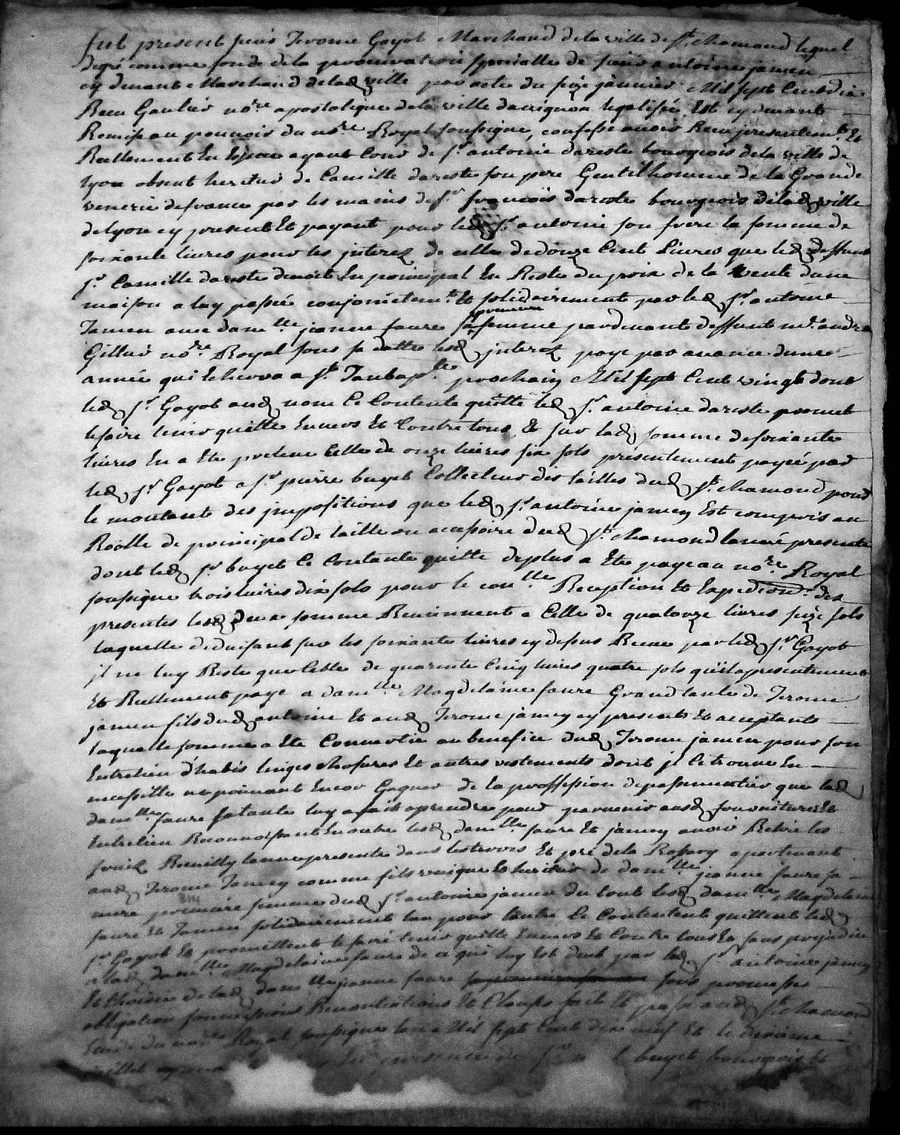 fut present sieur Jerome Gayot Marchand de la ville de St. chamond lequel
degré comme fondé de la procuration specialle de sieur antoine jamen
cy devant Marchand de lad ville par acte du seize janvier Mil sept Cent dix
Reçu Gaultier nore apostolique de la ville davignon legalisée Est cy devant
Remise au pouvoir du nore Royal soussigné, confesse avoir Reçu presentement Et
Reellement En Espece ayant Cours de sr antoine dareste bourgeois de la ville de
lyon absent heritier de Camille dareste son pere Gentilhomme de la Grande
venerie de france par les mains de sr françois dareste bourgeois de lad ville
de lyon cy present Et payant pour led sr. antoine son frere la somme de
soixante livres pour les interez de celle de douze Cent Livres que led deffunt
sr. Camille dareste devoit En principal En Reste du prix de la vente dune
maison a luy passée conjointemt Et solidairement par led sr. antoine
Jamen avec damlle jeanne faure sa premiere femme pardevant deffunt me. andré
Gillier nore. Royal sous sa datte lesd interez payé par avance dune
année qui Echerra a St. Jeanbaptte prochain Mil sept Cent vingt dont
led sr. Gayot aud nom Ce Contente quitte led sr. antoine dareste promet
le faire tenir quitte Envers Et Contre tous & sur lad somme de soixante
livres En a Ete precomte Celle de onze livres six sols presentement payée par
led sr. Gayot a sr. pierre buyet Collecteur des tailles dud St. chamond pour
le montant des impositions que led sr. antoine jamen Est compris au
Roolle de principal de taille ou accessoire dud St. chamond lannée presente
dont led sr. buyet Ce Contente quitte deplus a Ete payé au nore Royal
soussigne trois livres dix sols pour le conlle Reception Et Expedition des
presentes lesd deux somme Reviennent a Celle de quatorze livres seize sols
laquelle deduisant sur les soixante livres cy dessus Reçue par led sr. Gayot
jl ne luy Reste que Celle de quarente Cinq livres quatre sols quil a presentement
Et Reellement payé a damlle Magdelaine faure Grand tante de Jerome
jamen fils dud antoine Et aud Jerome jamen cy presents Et acceptants
laquelle somme a Ete Convertie au benefice dud Jerome jamen pour son
Entretien d'habis linges chosures Et autres vestements dont jl le trouve En
necessitte ne pouvant Encor Gagner de la proffession de passementier que lad
damlle faure sa tante luy a fait aprendre pour parvenir aud fournitures Et
Entretien Reconnoissant En outre lesd damlle faure Et jamen avoir Retiré les
foins Recuilly lannee presente dans les terres Et pré de la Rossary apartenant
aud Jerome Jamen comme fils unique Et heritier de damlle jeanne faure sa
mere premiere femme dud sr. antoine jamen du tout lesd damlle Magdelaine
faure Et Jamen solidairement lun pour lautre Ce Contentent quittent led
sr. Gayot Et promettent le faire tenir quitte Envers Et Contre tous Et sans prejudice
a lad damlle Magdelaine faure de ce qui luy Est deub par led sr. antoine jamen
Et hoirie de lad damlle jeanne faure sous promesse
obligation soumissions Renontiations Et Clauses fait Et passé aud St. chamond
Etude du nore Royal soussigné lan Mil sept Cent dix neuf Et le
juillet presence de buyet bourgeois Et